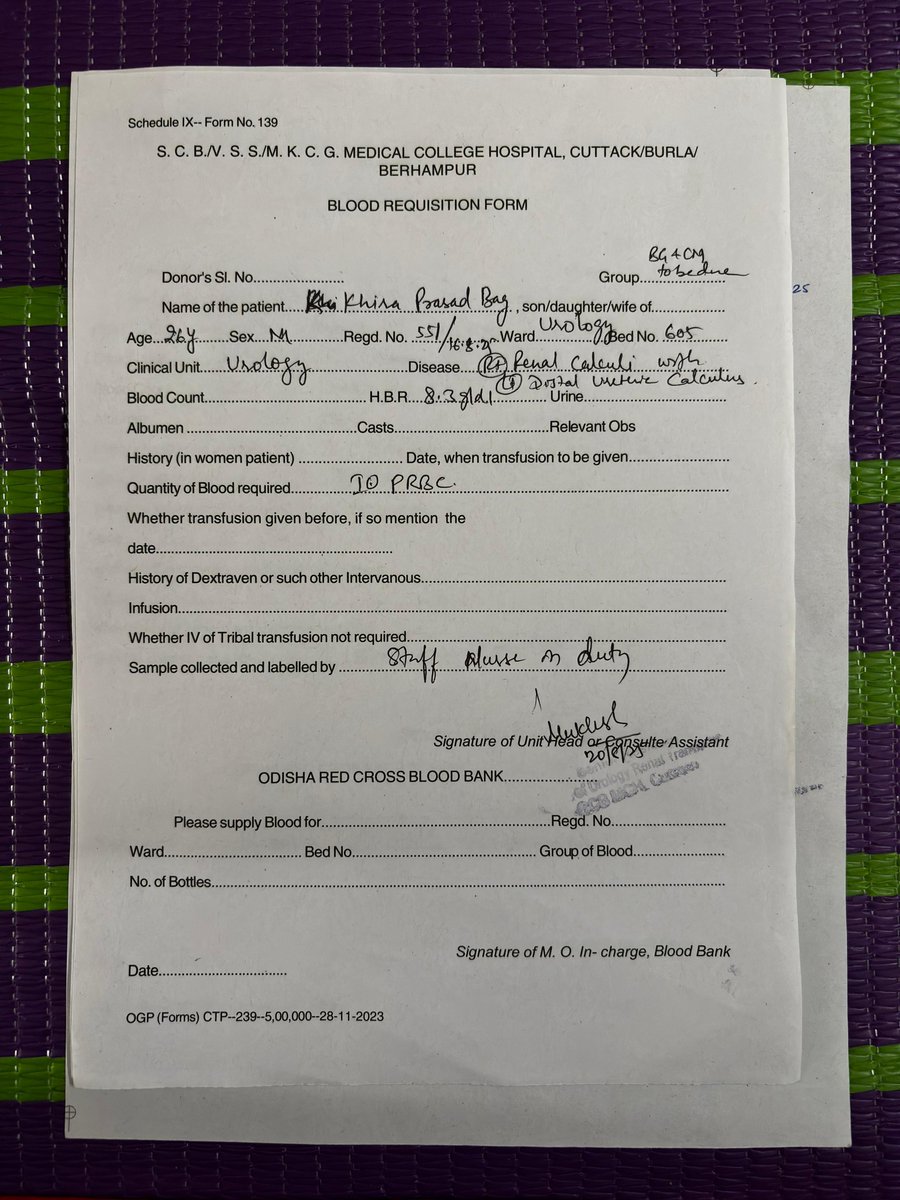 Schedule IX-- Form No. 139
S. C. B./V. S. S./M. K. C. G. MEDICAL COLLEGE HOSPITAL, CUTTACK/BURLA/
BERHAMPUR
BLOOD REQUISITION FORM
BG & CM
Donor's Sl. No........................ Group to be done
Name of the patient.... Khira Prasad Bag, son/daughter/wife of....................
Age 26y Sex M Regd. No. 551/ Ward Urology Bed No. 605
25
Clinical Unit Urology Disease (Rt) Renal Calculi with
(Lt) Distal Ureteric Calculus.
Blood Count........................ H.B.R 8.3 g/dl Urine........................
Albumen ........................ Casts........................ Relevant Obs
History (in women patient) ........................ Date, when transfusion to be given........................
Quantity of Blood required PRBC.
Whether transfusion given before, if so mention the
date........................
History of Dextraven or such other Intervanous........................
Infusion........................
Whether IV of Tribal transfusion not required........................
Sample collected and labelled by Staff Nurse on duty
Signature of Unit Head or Consulte Assistant
20/8/25
of Urology Renal
SCB MCH, Cuttack
ODISHA RED CROSS BLOOD BANK........................
Please supply Blood for........................ Regd. No........................
Ward........................ Bed No........................ Group of Blood........................
No. of Bottles........................
Signature of M. O. In- charge, Blood Bank
Date........................
OGP (Forms) CTP--239--5,00,000--28-11-2023